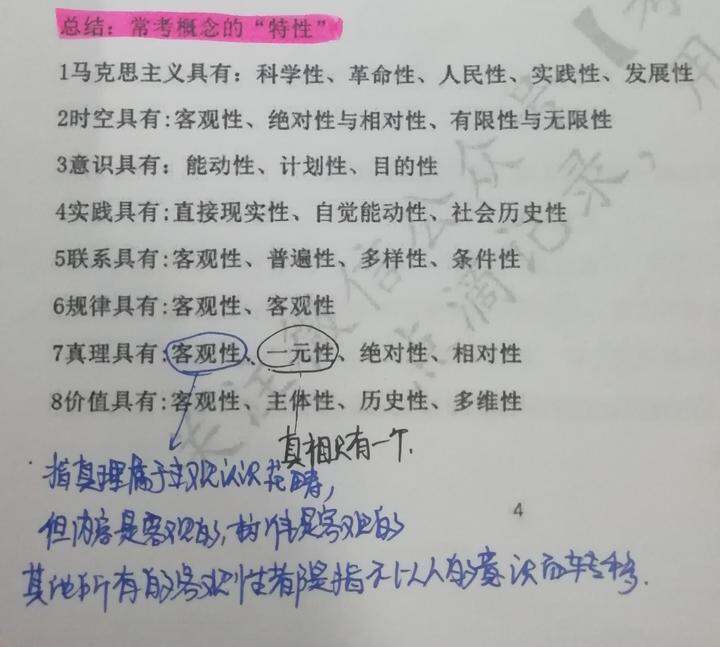 总结：常考概念的“特性”
1马克思主义具有：科学性、革命性、人民性、实践性、发展性
2时空具有:客观性、绝对性与相对性、有限性与无限性
3意识具有：能动性、计划性、目的性
4实践具有:直接现实性、自觉能动性、社会历史性
5联系具有:客观性、普遍性、多样性、条件性
6规律具有:客观性、客观性
7真理具有:客观性、一元性、绝对性、相对性
8价值具有:客观性、主体性、历史性、多维性
真相只有一个.
指真理属于主观认识范畴,
但内容是客观的,标准是客观的
其他所有的客观性都是指不以人的意识而转移.
4
关注微信公众号【
点滴记录，用